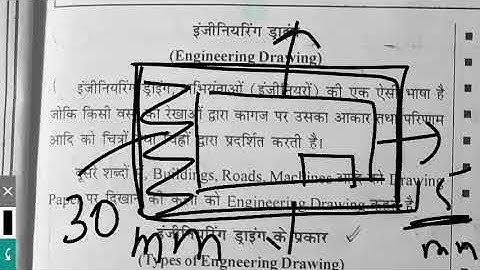 इंजीनियरिंग ड्राइंग
(Engineering Drawing)
इंजीनियरिंग ड्राइंग, अभियंताओं (इंजीनियरों) की एक ऐसी भाषा है
जोकि किसी वस्तु को रेखाओं द्वारा कागज पर उसका आकार तथा परिणाम
आदि को चित्रों तथा चिन्हों द्वारा प्रदर्शित करती है।
दूसरे शब्दों Buildings, Roads, Machines आदि को Drawing
Paper पर दिखाने की कला को Engineering Drawing कहते है
30 mm
15 mm
इंजीनियरिंग ड्राइंग के प्रकार
(Types of Engneering Drawing)